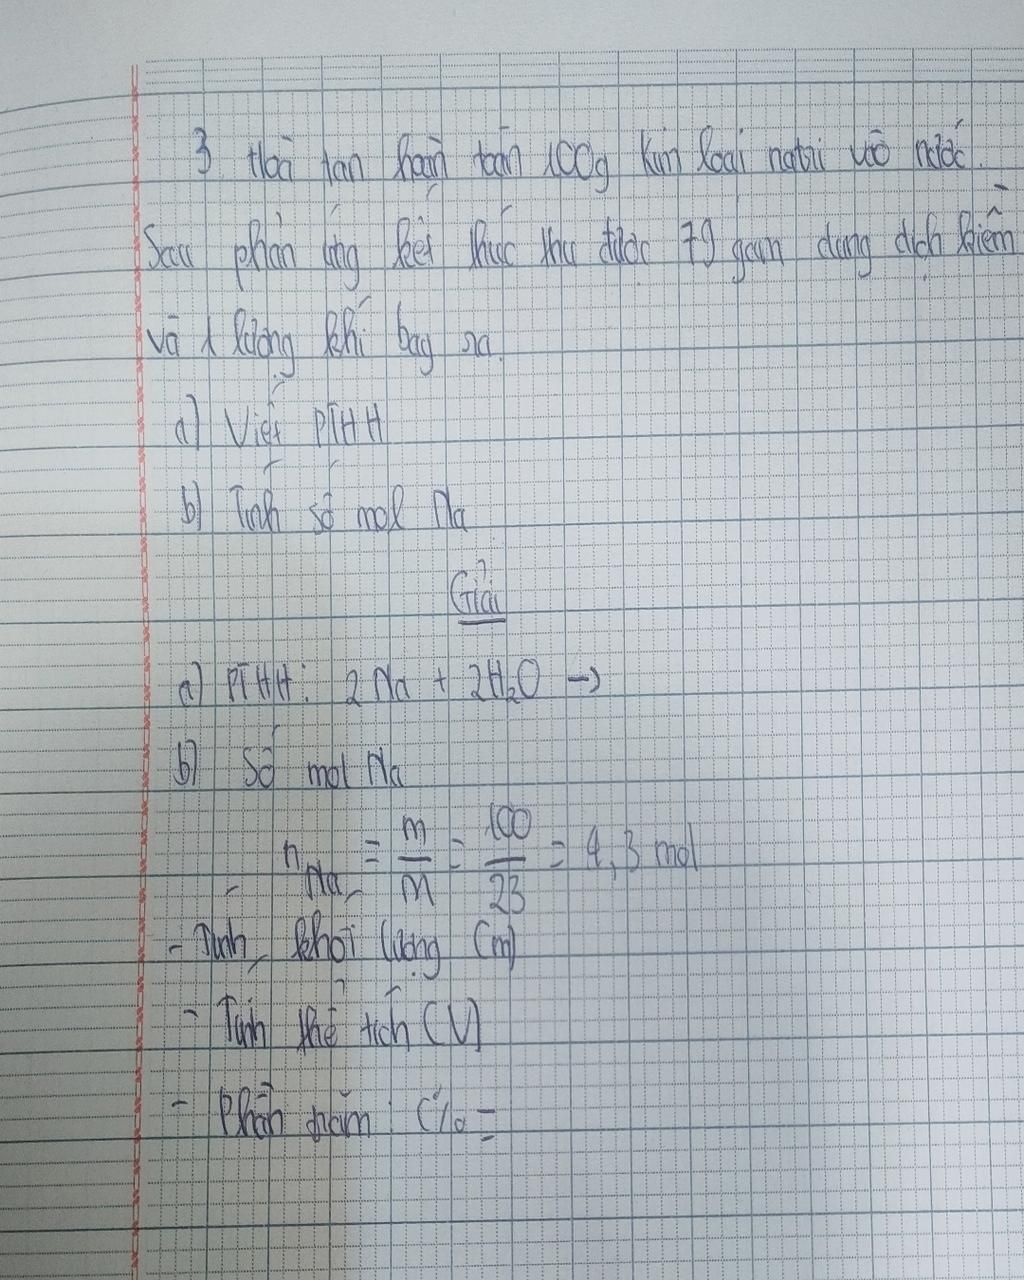 3 Hoà tan hoàn toàn 100g kim loại natri vào nước.
Sau phản ứng kết thúc thu được 79 gam dung dịch kiềm
và 1 lượng khí bay ra.
a) Viết PTHH
b) Tính số mol Na
Giải
a) PTHH: 2Na + 2H₂O →
b) Số mol Na
n Na = m/M = 100/23 = 4,3 mol
- Tính khối lượng (m)
- Tính thể tích (V)
- Phần trăm: C% =